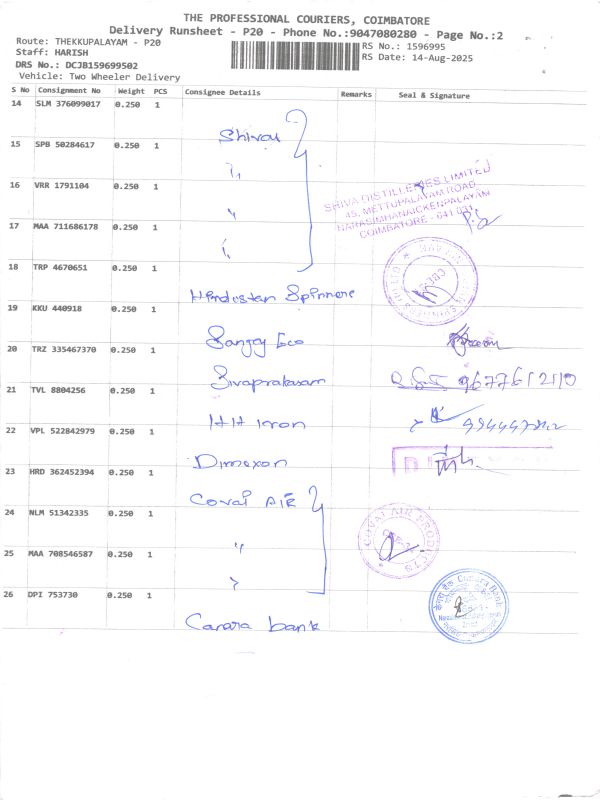 THE PROFESSIONAL COURIERS, COIMBATORE
Delivery Runsheet - P20 - Phone No.:9047080280 - Page No.:2
Route: THEKKUPALAYAM - P20
RS No.: 1596995
Staff: HARISH
RS Date: 14-Aug-2025
DRS No.: DCJB159699502
Vehicle: Two Wheeler Delivery
S No Consignment No Weight PCS Consignee Details Remarks Seal & Signature
14 SLM 376099017 0.250 1
Shiva
15 SPB 50284617 0.250 1
16 VRR 1791104 0.250 1
SHIVA DISTILLERIES LIMITED
45, METTUPALAYAM ROAD
NARASIMHANAICKENPALAYAM
COIMBATORE - 641 031
17 MAA 711686178 0.250 1
18 TRP 4670651 0.250 1
Hindustan Spinners
19 KKU 440918 0.250 1
Sanjay Eco
20 TRZ 335467370 0.250 1
Sivaprakasam
21 TVL 8804256 0.250 1
HH Iron
22 VPL 522842979 0.250 1
Dimexon
23 HRD 362452394 0.250 1
Covai AIR
24 NLM 51342335 0.250 1
"
COVAI AIR PRODUCTS
25 MAA 708546587 0.250 1
26 DPI 753730 0.250 1
Canara bank
Canara Bank